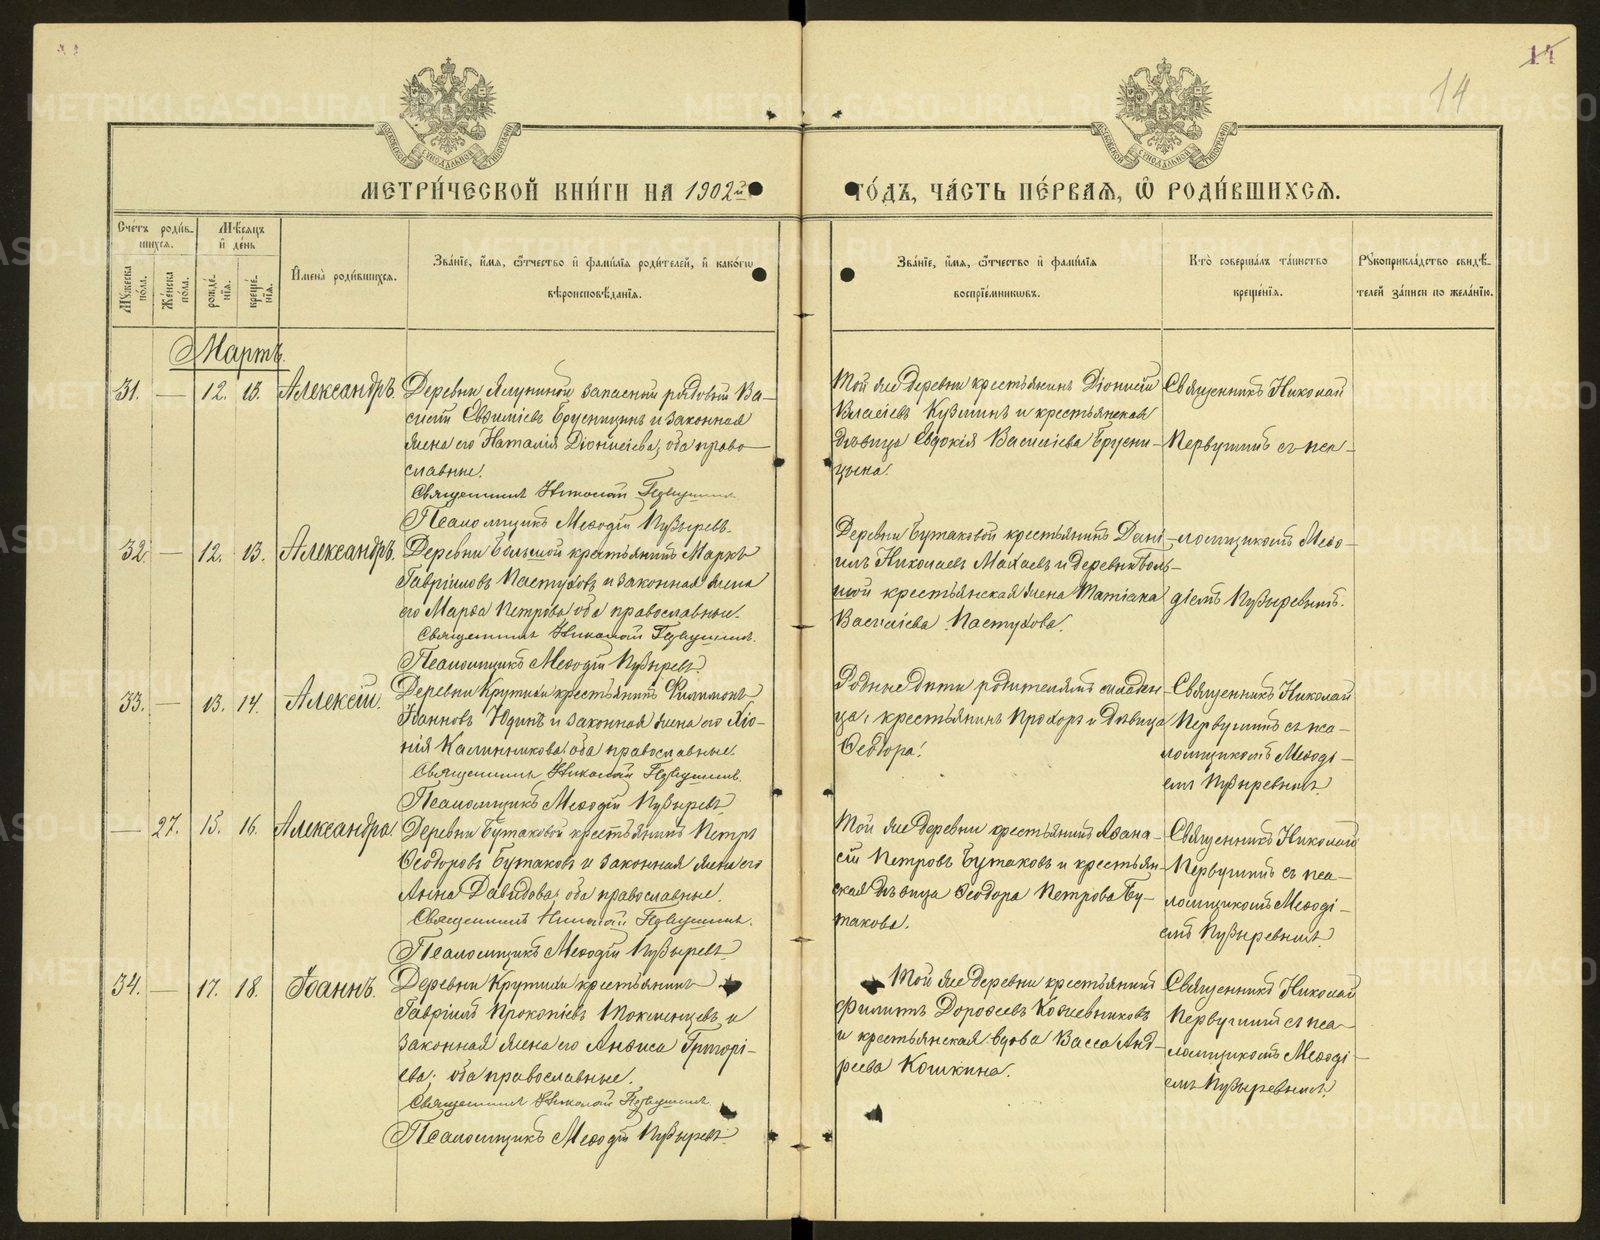 14
14
МЕТРИ́ЧЕСКОЙ КНИ́ГИ НА 1902й
ГО́ДЪ, ЧА́СТЬ ПЕ́РВАЯ, Ѿ РОДИ́ВШИХСЯ.
Сче́тъ роди́в-
шихся.
Мѣ́сяцъ
и҆ де́нь
Мꙋ́жеска по́ла.
Же́нска по́ла.
рожде́нїя.
креще́нїя.
И҆мена̀ роди́вшихся.
Зва́нїе, и҆́мя, ѻ҆́тчество и҆ фами́лїя роди́телей, и҆ како́гѡ
вѣроисповѣ́данїя.
Зва́нїе, и҆́мя, ѻ҆́тчество и҆ фами́лїя
воспрїе́мникѡвъ.
Кто̀ соверша́лъ та́инство
креще́нїя.
Рꙋкоприкла́дство свидѣ́-
телей за́писи по жела́нїю.
Мартъ.
31. — 12. 13. Александръ.
Деревни Ялуниной запасный рядовый Ва-
силій Евѳиміевъ Брусницынъ и законная
жена его Наталія Діонисіева, оба право-
славные.
Священникъ Николай Первушинъ.
Псаломщикъ Меѳодій Пузыревъ.
Той же деревни крестьянинъ Діонисій
Власіевъ Кузминъ и крестьянская
дѣвица Евдокія Василіева Брусни-
цына.
Священникъ Николай
Первушинъ съ пса-
32. — 12. 13. Александръ.
Деревни Большой крестьянинъ Маркъ
Гавріиловъ Пастуховъ и законная жена
его Марѳа Петрова оба православные.
Священникъ Николай Первушинъ.
Псаломщикъ Меѳодій Пузыревъ.
Деревни Бутаковой крестьянинъ Дані-
илъ Николаевъ Махаевъ и деревни Боль-
шой крестьянская жена Татіана
Василіева Пастухова.
ломщикомъ Меѳо-
діемъ Пузыревымъ.
33. — 13. 14. Алексій.
Деревни Крутихи крестьянинъ Филимонъ
Іоанновъ Юдинъ и законная жена его Хіо-
нія Калинникова: оба православные.
Священникъ Николай Первушинъ.
Псаломщикъ Меѳодій Пузыревъ
Родные дѣти родителямъ младен-
ца, крестьянинъ Прохоръ и дѣвица
Ѳеодора.
Священникъ Николай
Первушинъ съ пса-
ломщикомъ Меѳоді-
емъ Пузыревымъ.
— 27. 15. 16. Александра
Деревни Бутаковой крестьянинъ Петръ
Ѳеодоровъ Бутаковъ и законная жена его
Анна Давидова; оба православные.
Священникъ Николай Первушинъ.
Псаломщикъ Меѳодій Пузыревъ
Той же деревни крестьянинъ Аѳана-
сій Петровъ Бутаковъ и крестьян-
ская дѣвица Ѳеодора Петрова Бу-
такова.
Священникъ Николай
Первушинъ съ пса-
ломщикомъ Меѳоді-
емъ Пузыревымъ.
34. — 17. 18. Іоаннъ.
Деревни Крутихи крестьянинъ
Гавріилъ Прокопіевъ Токменцевъ и
законная жена его Анѳиса Григорі-
ева; оба православные.
Священникъ Николай Первушинъ
Псаломщикъ Меѳодій Пузыревъ.
Той же деревни крестьянинъ
Филиппъ Дороѳеевъ Кожевниковъ
и крестьянская вдова Васса Анд-
реева Кошкина.
Священникъ Николай
Первушинъ съ пса-
ломщикомъ Меѳоді-
емъ Пузыревымъ.